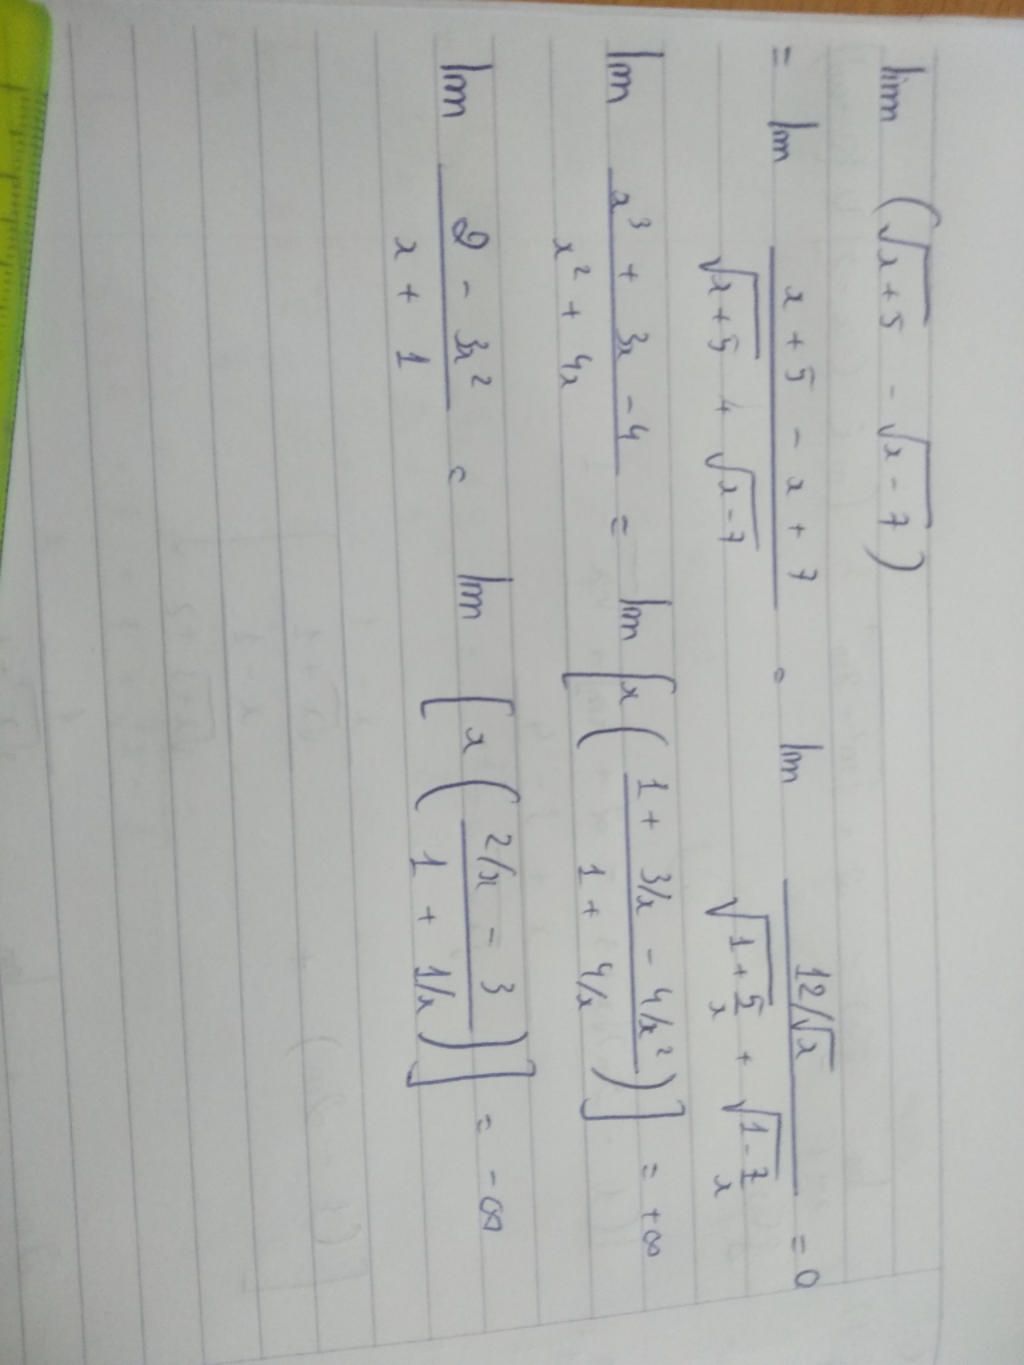 lim (√x+5 - √x-7)
= lim x+5-x+7 / √x+5 + √x-7 = lim 12/√x / √1+5/x + √1-7/x = 0
lim x³ + 3x - 4 / x² + 4x = lim [x (1 + 3/x - 4/x² / 1 + 4/x)] = +∞
lim 2 - 3x² / x + 1 = lim [x (2/x - 3 / 1 + 1/x)] = -∞